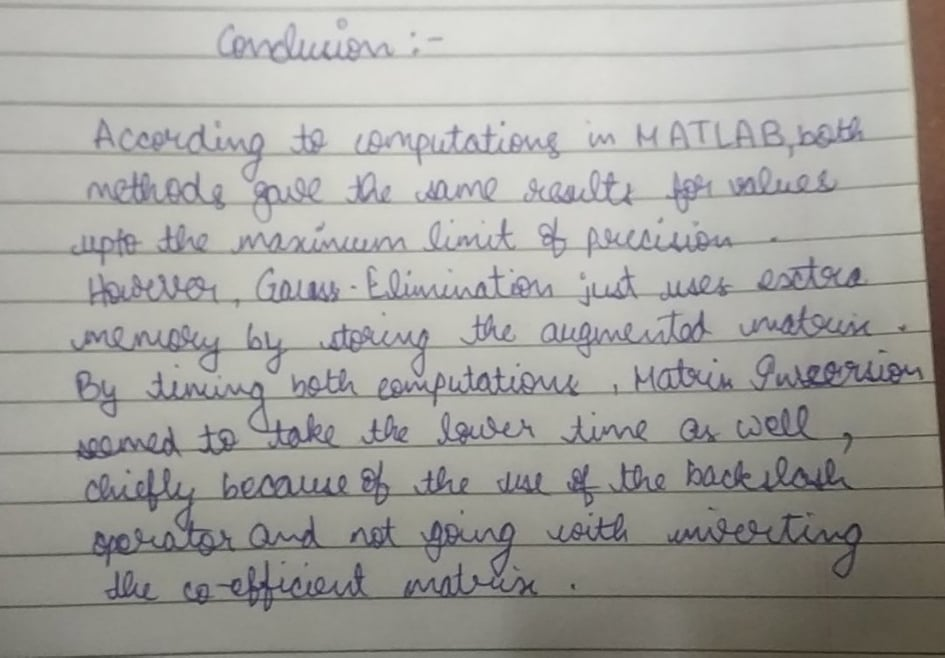 Conclusion :-
According to computations in MATLAB, both
methods gave the same results for values
upto the maximum limit of precision .
However, Gauss-Elimination just uses esctra
memory by storing the augmented matrix .
By timing both computations , Matrix Inversion
seemed to take the lower time as well ,
chiefly because of the use of the backslash
operator and not going with inverting
the co-efficient matrix .